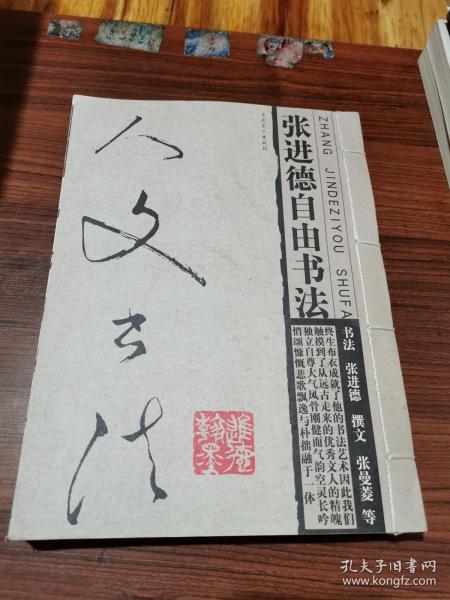 中国文史出版社
张进德自由书法
ZHANG JINDEZIYOU SHUFA
人文书法
书法 张进德 撰文 张曼菱 等
终生布衣成就了他的书法艺术因此我们
触摸到了从远古走来的优秀文人的精魄
独立自尊大气风骨刚健而气韵空灵长吟
悄颂慷慨悲歌飘逸与朴拙融于一体
進德
翰墨
孔夫子旧书网
www.kongfz.com